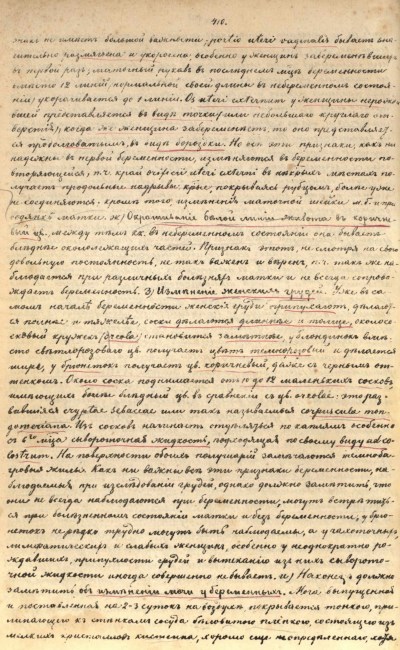 410.
знако не имѣетъ большой важности. portio uteri vaginalis бываетъ зна-
чительно размягчена и укорочена особенно у женщинъ забеременѣвшихъ
въ первой разъ; маточный рукавъ въ послѣднемъ мцѣ беременности
вмѣсто 12 линій, нормальной своей длины въ небеременномъ состоя-
ніи, укорачивается до 1 линіи. Os uteri externum у женщины нерожа-
вшей представляется въ видѣ точки или небольшаго круглаго от-
верстія; когда же женщина забеременѣетъ, то оно представляет-
ся продолговатымъ, въ видѣ бороздки. Но всѣ эти признаки, какъ ни
надежны въ первой беременности, измѣняются въ беременности по-
вторяющейся, т.ч. край orificii uteri externi въ нѣкоторыхъ мѣстахъ по-
лучаетъ продольные надрывы, кои, покрываясь рубцомъ, болѣе уже
не соединяются; кромѣ того измѣненія маточной ш. б. и при
водянкѣ матки. ж) Окрашиваніе бѣлой линіи живота въ коричне-
вый цв. между тѣмъ кк. въ небеременномъ состояніи она бываетъ
блѣднѣе околележащихъ частей. Признакъ этотъ, не смотря на свою
довольную постоянность, не такъ важенъ и вѣренъ, п.ч. такъ же на-
блюдается при различныхъ болѣзняхъ матки и не всегда сопрово-
ждаетъ беременность. з) Измѣненія женскихъ грудей. Уже въ са-
момъ началѣ беременности женскія груди припухаютъ, дѣлают-
ся полнѣе и тяжелѣе, соски дѣлаются длиннѣе и толще, около со-
сковый кружекъ (areola) становится замѣтнѣе, у блондинокъ вмѣ-
сто свѣтлорозоваго цв. получаетъ цвѣтъ темнорозовый и дѣлается
шире, у брюнетокъ получаетъ цв. коричневый, даже съ чернымъ от-
тѣнкомъ. Около соска поднимается отъ 10 до 12 маленькихъ сосковъ
имѣющихъ болѣе блѣдный цв. въ сравненіи съ цв. areolae: это раз-
вившіяся cryptae sebaceae или такъ называемыя corpuscula
Изъ сосковъ начинаетъ отдѣляться по каплямъ особенно
съ 6го мѣсяца сывороточная жидкость, подходящая по своему виду ad co-
lostrum. На поверхности обоихъ полушарій замѣчаются темнова-
ровныя жилы. Какъ ни важны всѣ эти признаки беременности, на-
блюдаемые при изслѣдованіи грудей однако должно замѣтить, что
они не всегда наблюдаются при беременности, могутъ встрѣтить-
ся при болѣзненномъ состояніи матки и безъ беременности, у брю-
нетокъ нерѣдко трудно могутъ быть наблюдаемы, а у чахоточныхъ,
лимфатическихъ и слабыхъ женщинъ, особенно у неоднократно ро-
ждавшихъ, припухлости грудей и вытеканія изъ нихъ сыворото-
чной жидкости иногда совершенно не бываетъ. и) Наконецъ должно
замѣтить объ измѣненіи мочи у беременныхъ. Моча выпущенная
и поставленная на 2-3 сутокъ на воздухъ покрывается тонкою, при-
липающею къ стѣнкамъ сосуда бѣловатою плѣнкою, состоящею изъ
мелкихъ кристалловъ кистеина, хорошо еще неопредѣленнаго, хотя